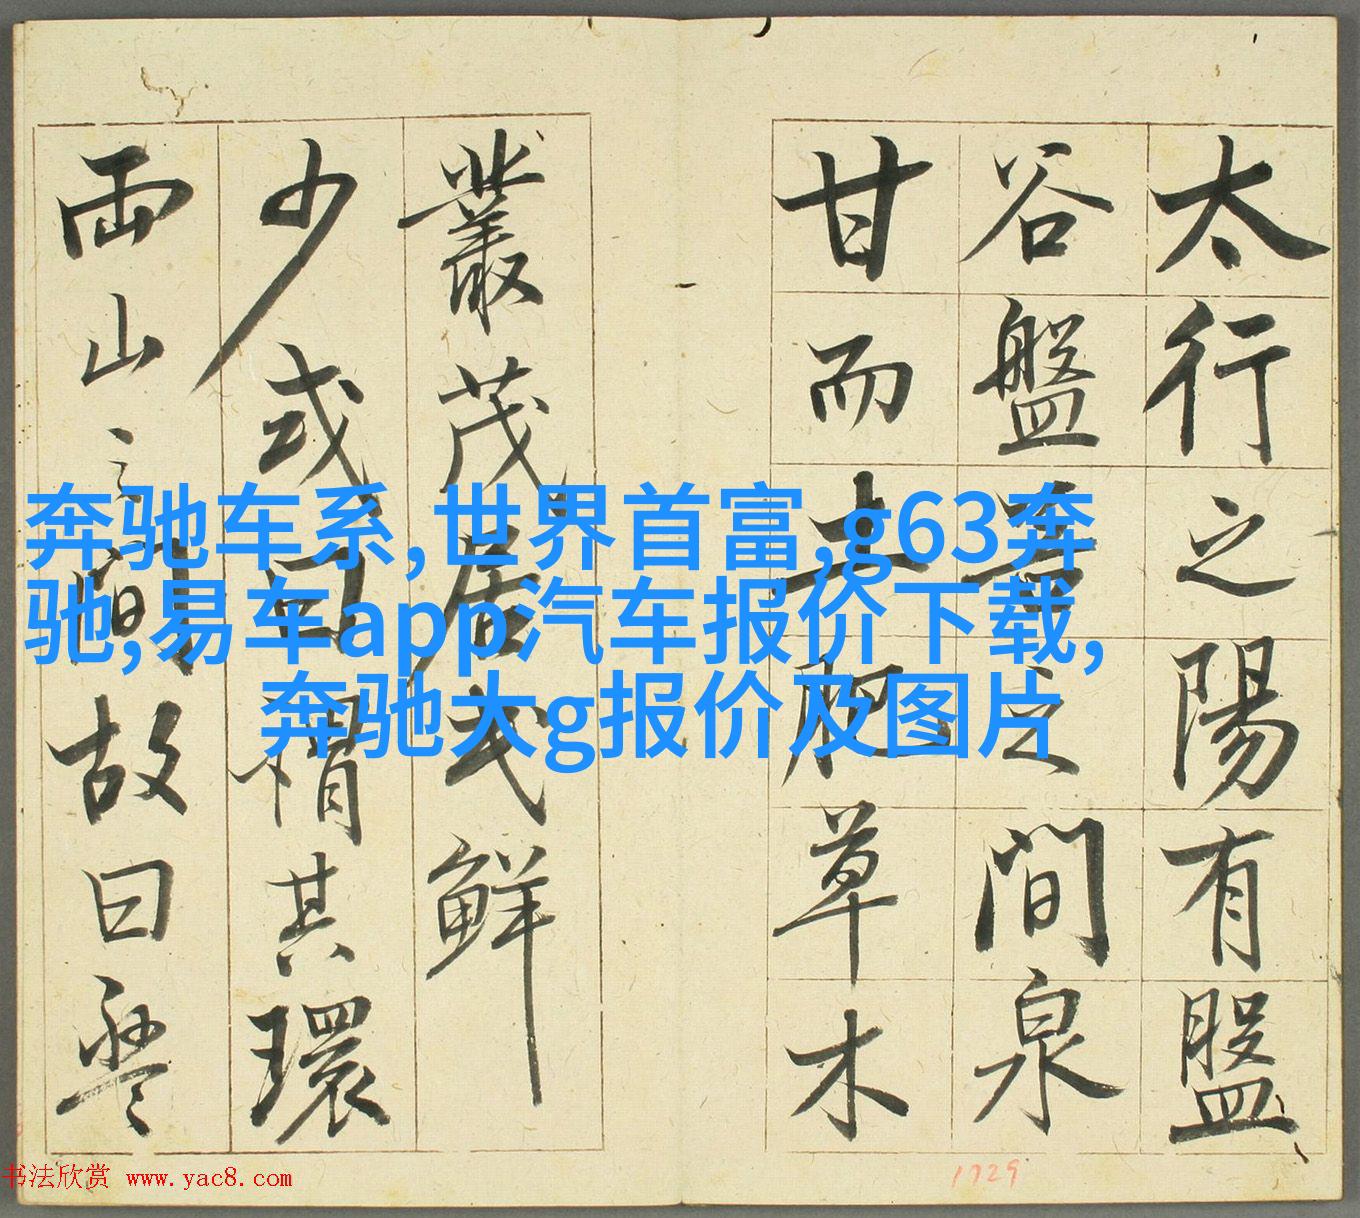 太行之陽有盤
谷盤谷之間泉
甘而土肥草木
叢茂居民鮮
少或曰謂其環
兩山之間故曰盤
奔驰车系,世界首富,g63奔
驰,易车app汽车报价下载,
奔驰大g报价及图片
书法欣赏 www.yac8.com
1729